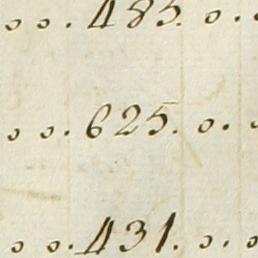 o o . 485 . o . o
o o . 625 . o . o
o o . 431 . o . o